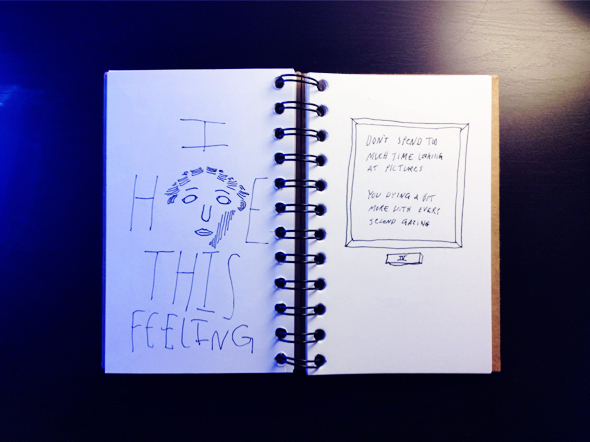 I
H E
THIS
FEELING
DON'T SPEND TOO
MUCH TIME LOOKING
AT PICTURES
YOU DYING A BIT
MORE WITH EVERY
SECOND GAZING